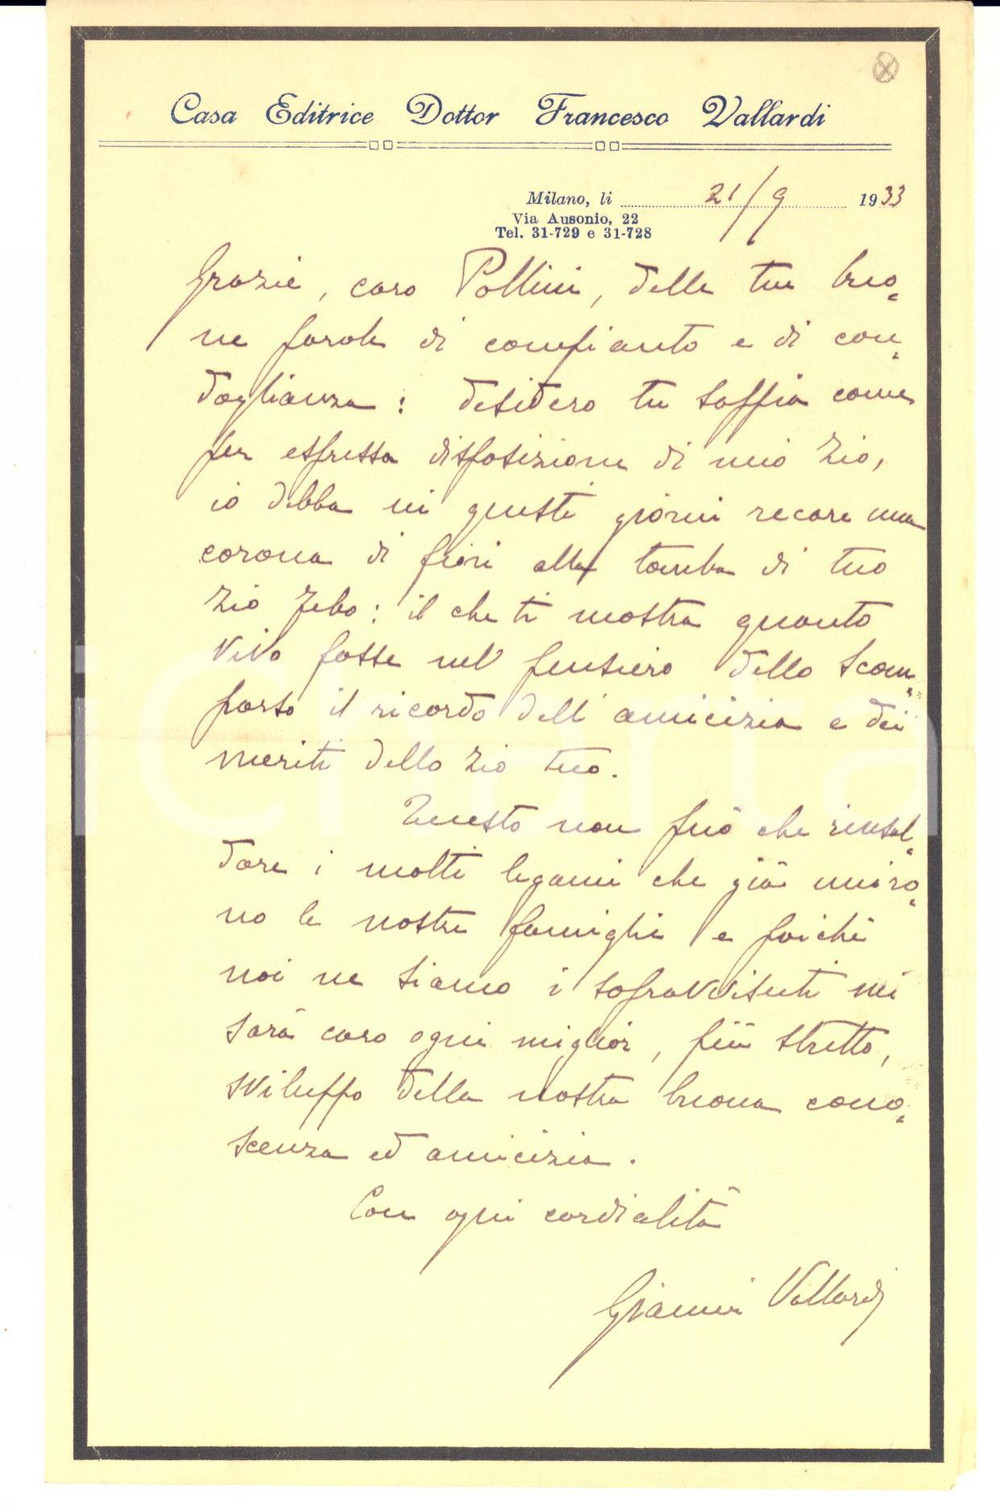 Casa Editrice Dottor Francesco Vallardi
Milano, li 21/9 1933
Via Ausonio, 22
Tel. 31-729 e 31-728
Grazie, caro Pollini, delle tue buo-
ne parole di compianto e di con-
doglianza: desidero tu sappia come
per espressa disposizione di mio Zio,
io debba in questi giorni recare una
corona di fiori alla tomba di tuo
Zio : il che ti mostra quanto
vivo fosse nel pensiero dello Scom-
parso il ricordo dell'amicizia e dei
meriti dello Zio tuo.
Questo non può che rinsal-
dare i molti legami che già uniro-
no le nostre famiglie e poichè
noi ne siamo i sopravvissuti mi
sarà caro ogni miglior, più stretto,
sviluppo della nostra buona cono-
scenza ed amicizia.
Con ogni cordialità
Gianni Vallardi
icharta